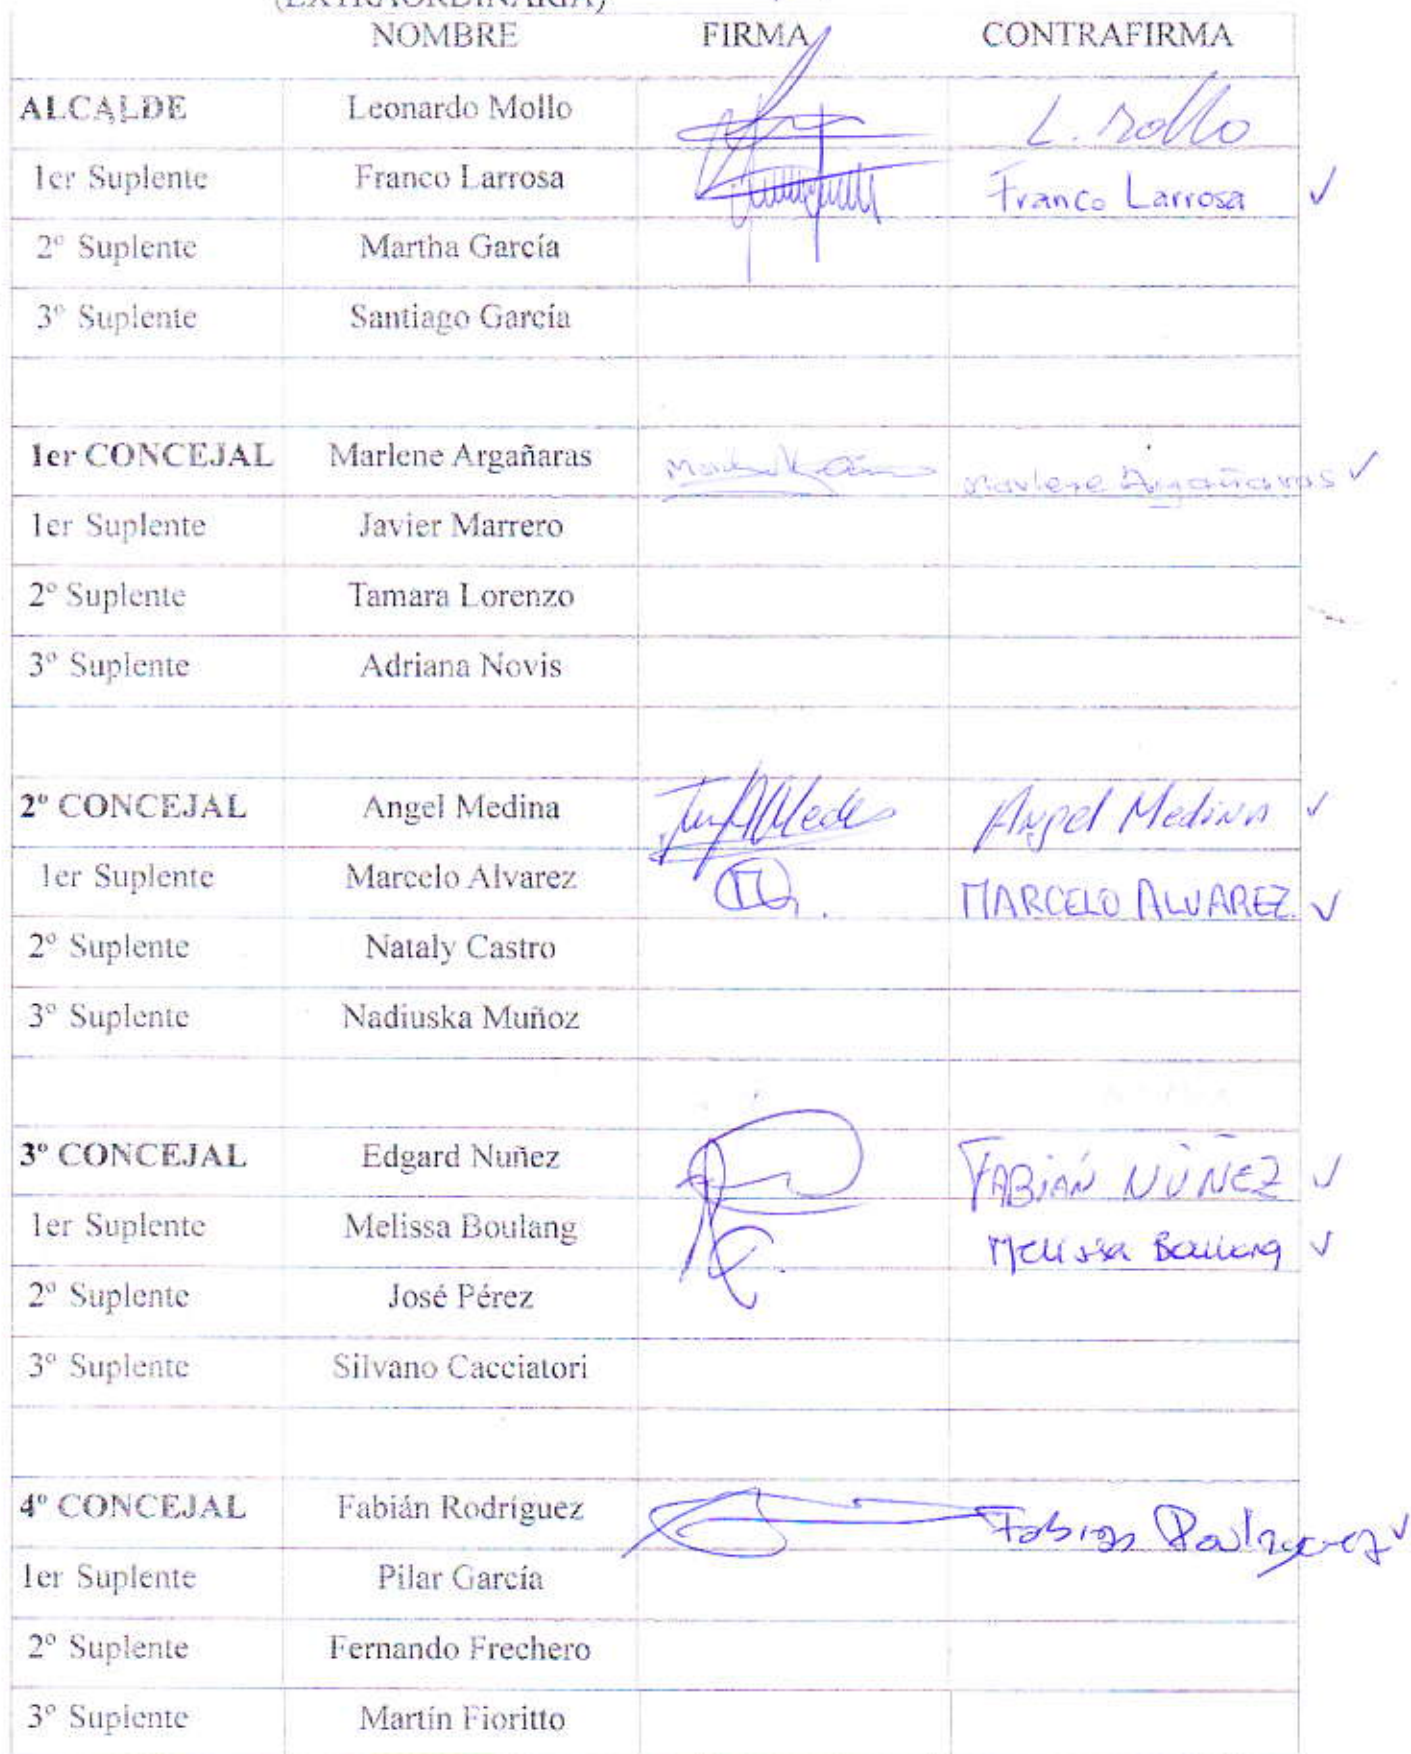 (EXTRAORDINARIA)
NOMBRE FIRMA CONTRAFIRMA
ALCALDE Leonardo Mollo L. Mollo
1er Suplente Franco Larrosa Franco Larrosa ✓
2º Suplente Martha García
3º Suplente Santiago García
1er CONCEJAL Marlene Argañaras Marlene Argañaras ✓
1er Suplente Javier Marrero
2º Suplente Tamara Lorenzo
3º Suplente Adriana Novis
2º CONCEJAL Angel Medina Angel Medina ✓
1er Suplente Marcelo Alvarez MARCELO ALVAREZ ✓
2º Suplente Nataly Castro
3º Suplente Nadiuska Muñoz
3º CONCEJAL Edgard Nuñez FABIÁN NÚÑEZ ✓
1er Suplente Melissa Boulang Melissa Boulang ✓
2º Suplente José Pérez
3º Suplente Silvano Cacciatori
4º CONCEJAL Fabián Rodríguez Fabian Rodriguez ✓
1er Suplente Pilar García
2º Suplente Fernando Frechero
3º Suplente Martín Fioritto